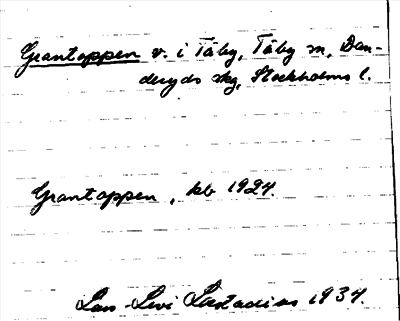 Grantoppen v. i Täby, Täby sn, Dan-
deryds skg, Stockholms l.
Grantoppen, kb 1924.
Lars-Levi Læstadius 1934.